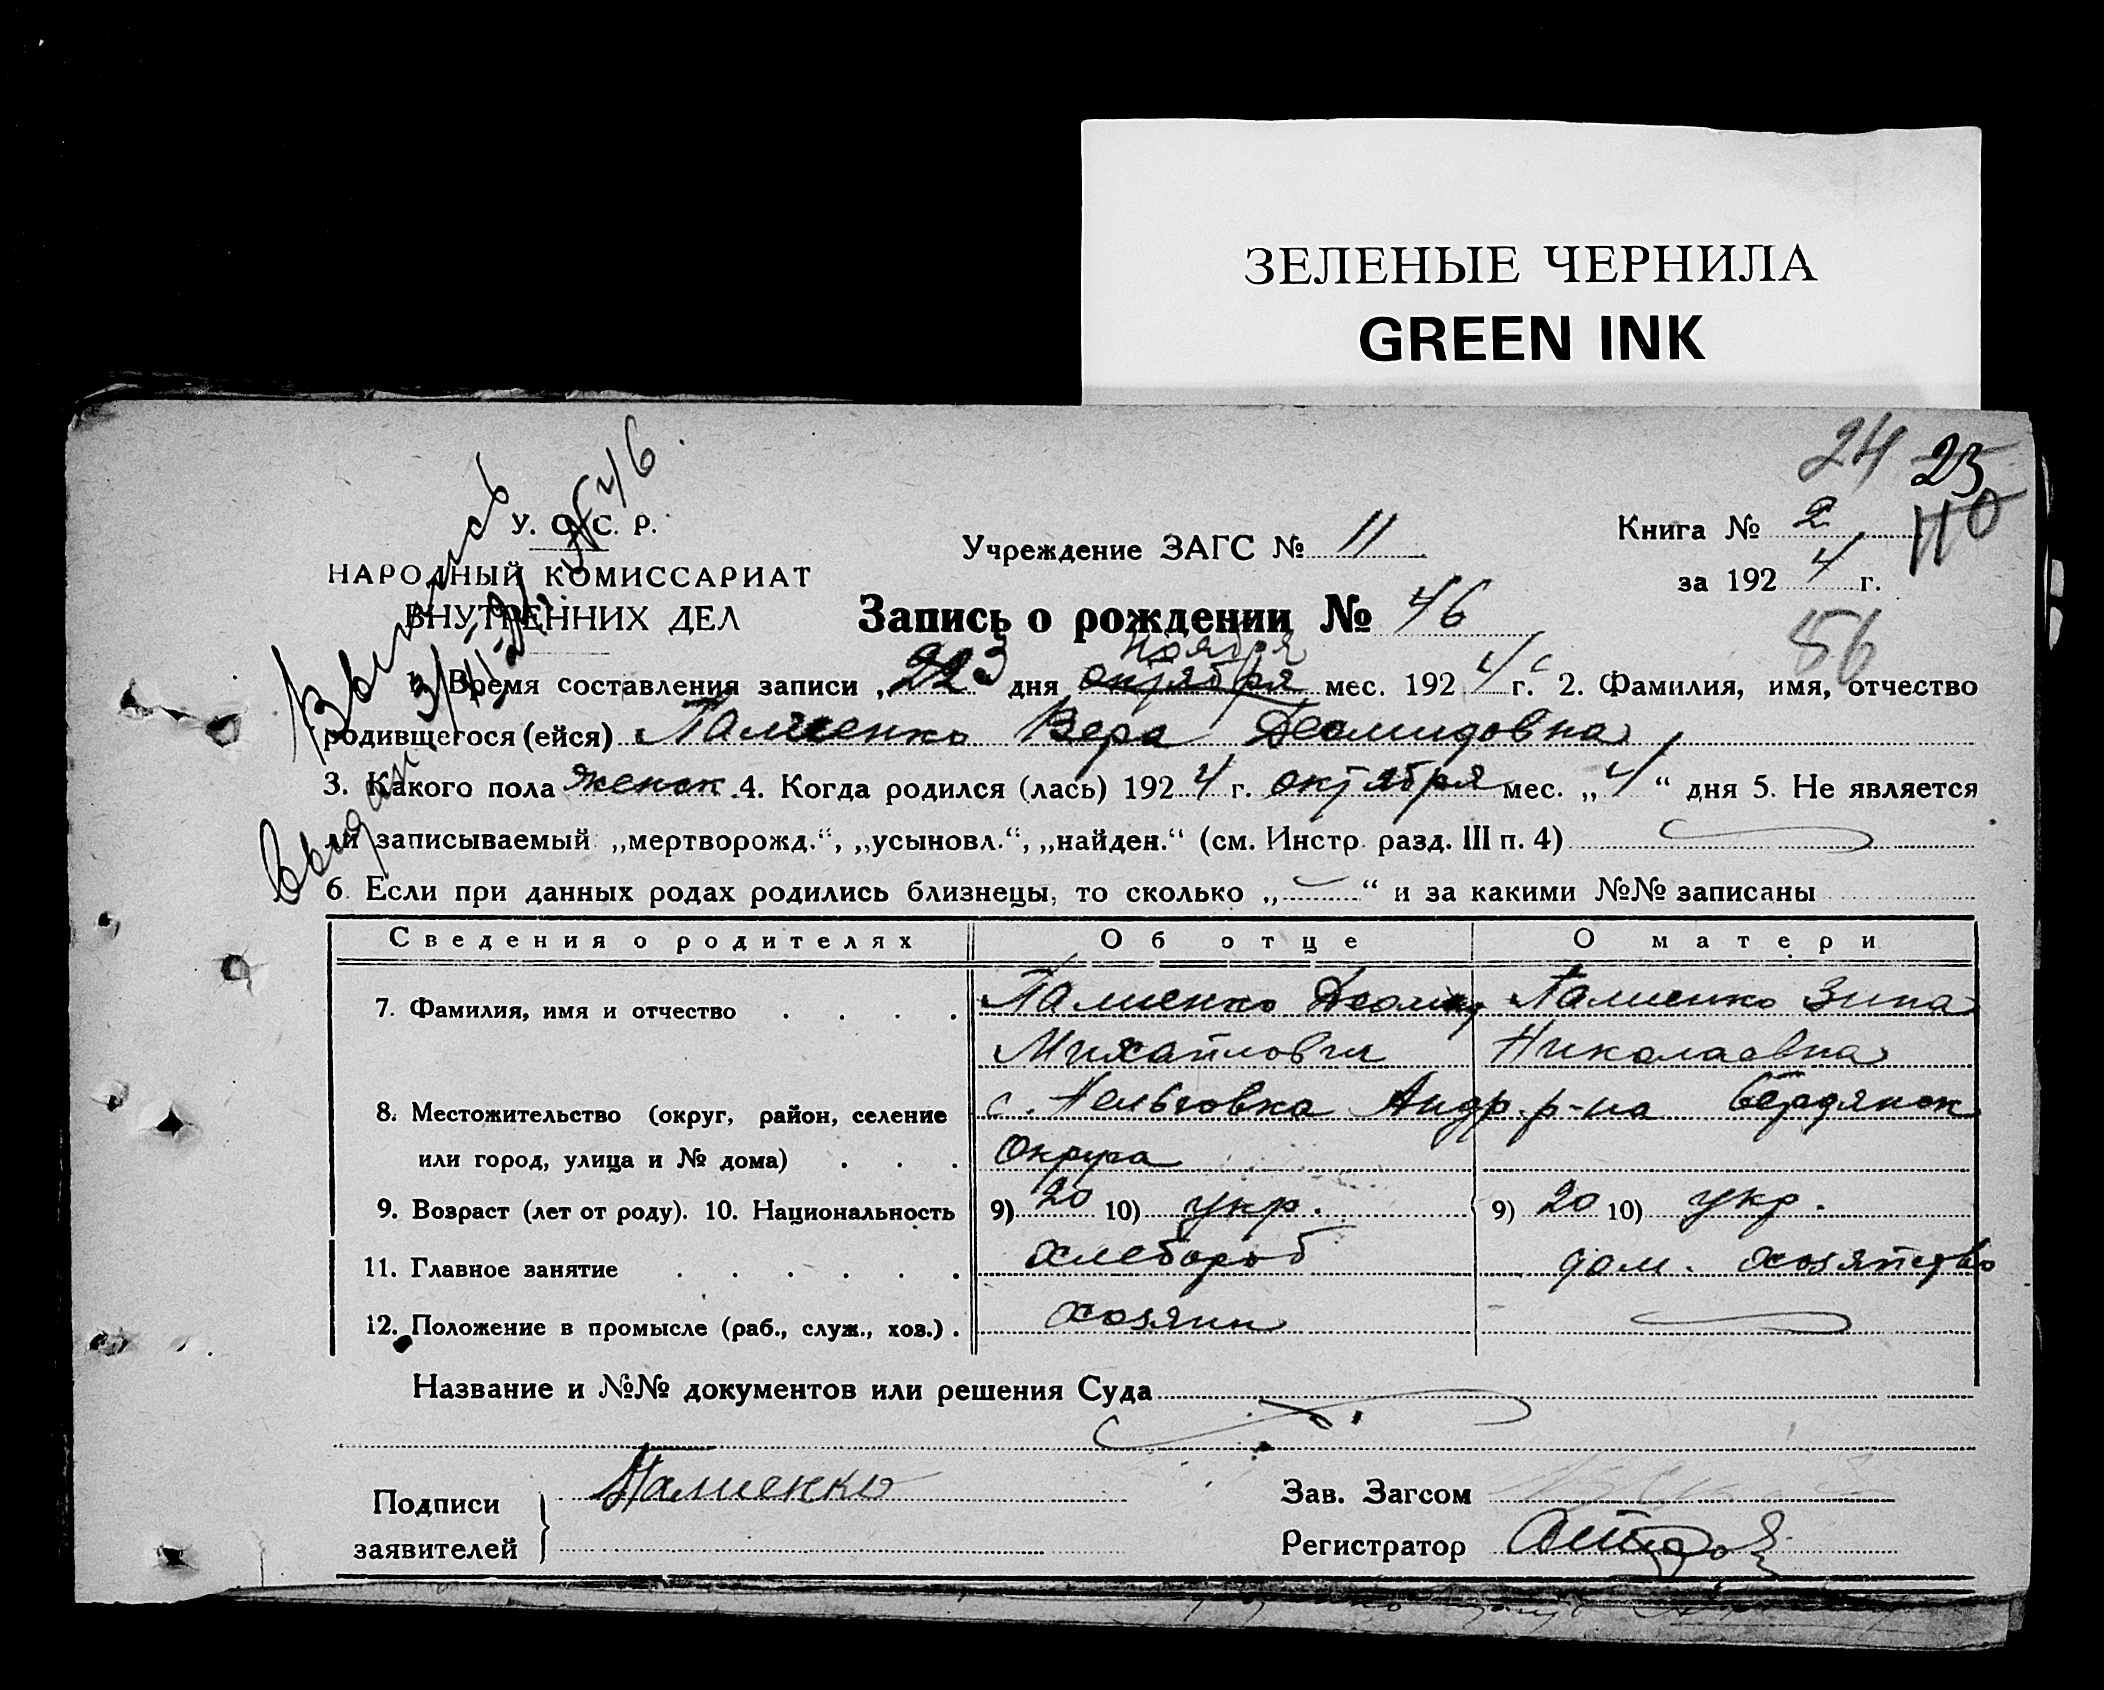 ЗЕЛЕНЫЕ ЧЕРНИЛА
GREEN INK
24 25
110
56
Выпись
Выдан 3/XI-24 № 46.
У. С. С. Р.
НАРОДНЫЙ КОМИССАРИАТ
ВНУТРЕННИХ ДЕЛ
Учреждение ЗАГС № 11
Книга № 2
за 1924 г.
Запись о рождении № 46
ноября
1. Время составления записи „ 3 дня октября мес. 1924 г. 2. Фамилия, имя, отчество
родившегося (ейся) Палиенко Вера Деомидовна
3. Какого пола женск. 4. Когда родился (лась) 1924 г. октября мес. „4“ дня 5. Не является
ли записываемый „мертворожд.“, „усыновл.“, „найден.“ (см. Инстр. разд. III п. 4)
6. Если при данных родах родились близнецы, то сколько „ — “ и за какими №№ записаны
Сведения о родителях Об отце О матери
7. Фамилия, имя и отчество Палиенко Деомид Палиенко Зина
Михайлович Николаевна
8. Местожительство (округ, район, селение с. Нельговка Андр. р-на Бердянск
или город, улица и № дома) Округа
9. Возраст (лет от роду). 10. Национальность 9) 20 10) укр. 9) 20 10) укр.
11. Главное занятие хлебороб дом. хозяйство
12. Положение в промысле (раб., служ., хоз.) хозяин
Название и №№ документов или решения Суда
Подписи
заявителей
Палиенко
Зав. Загсом
Регистратор